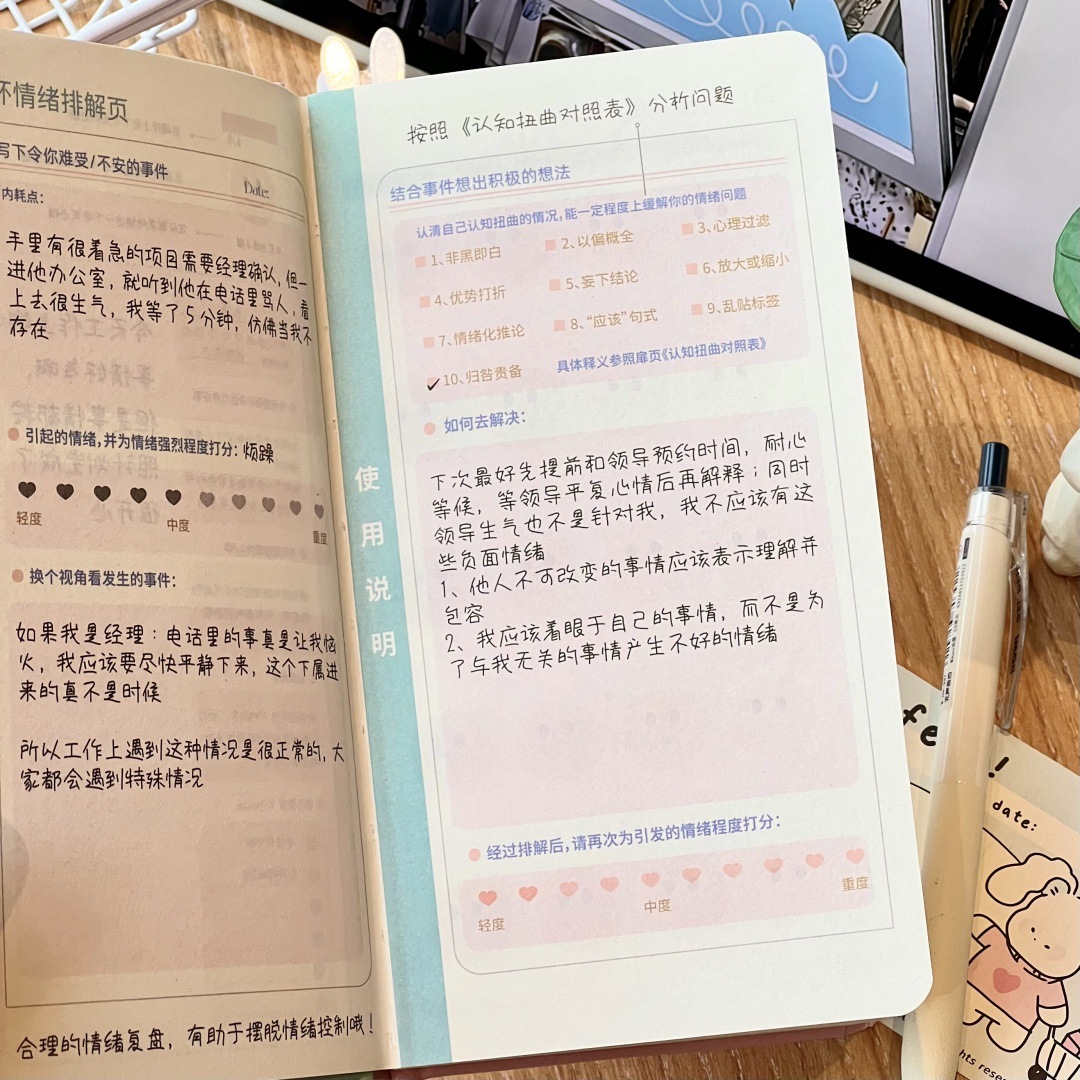 坏情绪排解页
写下令你难受/不安的事件
Date:
内耗点:
手里有很着急的项目需要经理确认,但一
进他办公室,就听到他在电话里骂人,看
上去很生气,我等了5分钟,仿佛当我不
存在
引起的情绪,并为情绪强烈程度打分: 烦躁
轻度
中度
重度
换个视角看发生的事件:
如果我是经理:电话里的事真是让我恼
火,我应该要尽快平静下来,这个下属进
来的真不是时候
所以工作上遇到这种情况是很正常的,大
家都会遇到特殊情况
合理的情绪复盘,有助于摆脱情绪控制哦!
使用说明
按照《认知扭曲对照表》分析问题
结合事件想出积极的想法
认清自己认知扭曲的情况,能一定程度上缓解你的情绪问题
1、非黑即白
2、以偏概全
3、心理过滤
4、优势打折
5、妄下结论
6、放大或缩小
7、情绪化推论
8、“应该”句式
9、乱贴标签
✓10、归咎责备
具体释义参照扉页《认知扭曲对照表》
如何去解决:
下次最好先提前和领导预约时间,耐心
等候,等领导平复心情后再解释;同时
领导生气也不是针对我,我不应该有这
些负面情绪
1、他人不可改变的事情应该表示理解并
包容
2、我应该着眼于自己的事情,而不是为
了与我无关的事情产生不好的情绪
经过排解后,请再次为引发的情绪程度打分:
轻度
中度
重度
date: